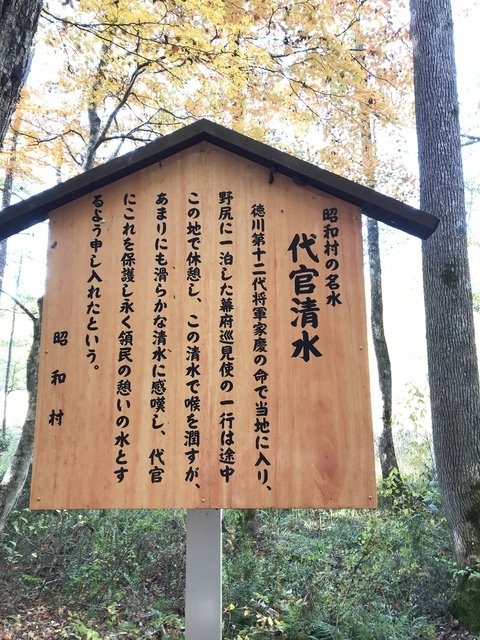 昭和村の名水
代官清水
徳川第十二代将軍家慶の命で当地に入り、
野尻に一泊した幕府巡見使の一行は途中
この地で休憩し、この清水で喉を潤すが、
あまりにも滑らかな清水に感嘆し、代官
にこれを保護し永く領民の憩いの水とす
るよう申し入れたという。
昭和村